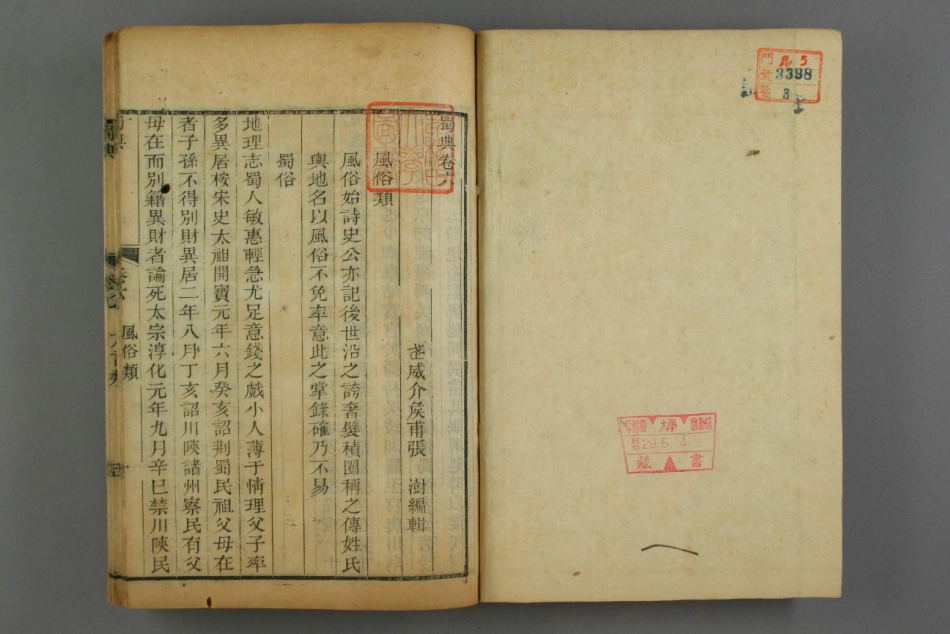 門 ル5
號 3398
卷 3
蜀典卷六
武威介矦甫張 澍編輯
風俗類
風俗始詩史公亦記後世沿之誇奢髮積圈稱之傳姓氏
輿地名以風俗不免率意此之掌錄確乃不易
蜀俗
地理志蜀人敏惠輕急尤足意錢之戲小人薄于情理父子率
多異居桉宋史太祖開寶元年六月癸亥詔荆蜀民祖父母在
者子孫不得別財異居二年八月丁亥詔川陝諸州察民有父
母在而別籍異財者論死太宗淳化元年九月辛巳禁川陝民
蜀典
卷六
風俗類
29.5.4
藏書